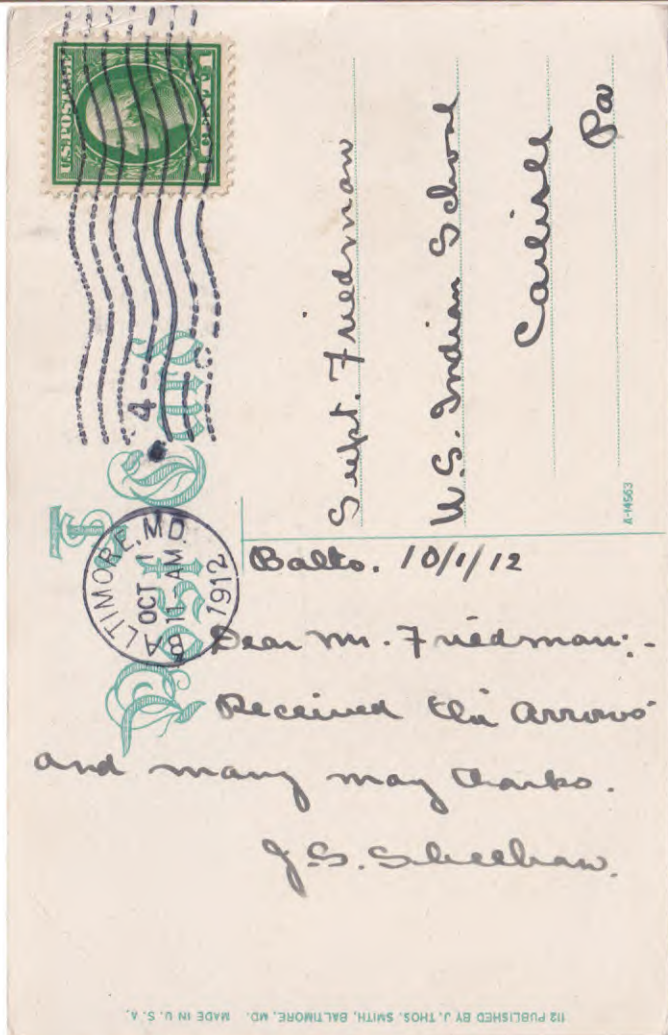 U.S. POSTAGE
1 CENT 1
POST CARD
BALTIMORE, MD.
OCT 1
11 AM
1912
4
Supt. Friedman
U.S. Indian School
Carlisle
Pa
A-14563
Balto. 10/1/12
Dear Mr. Friedman:-
Received the Arrows
and many may thanks.
J.S. Sheehan.
112 PUBLISHED BY J. THOS. SMITH, BALTIMORE, MD. MADE IN U. S. A.